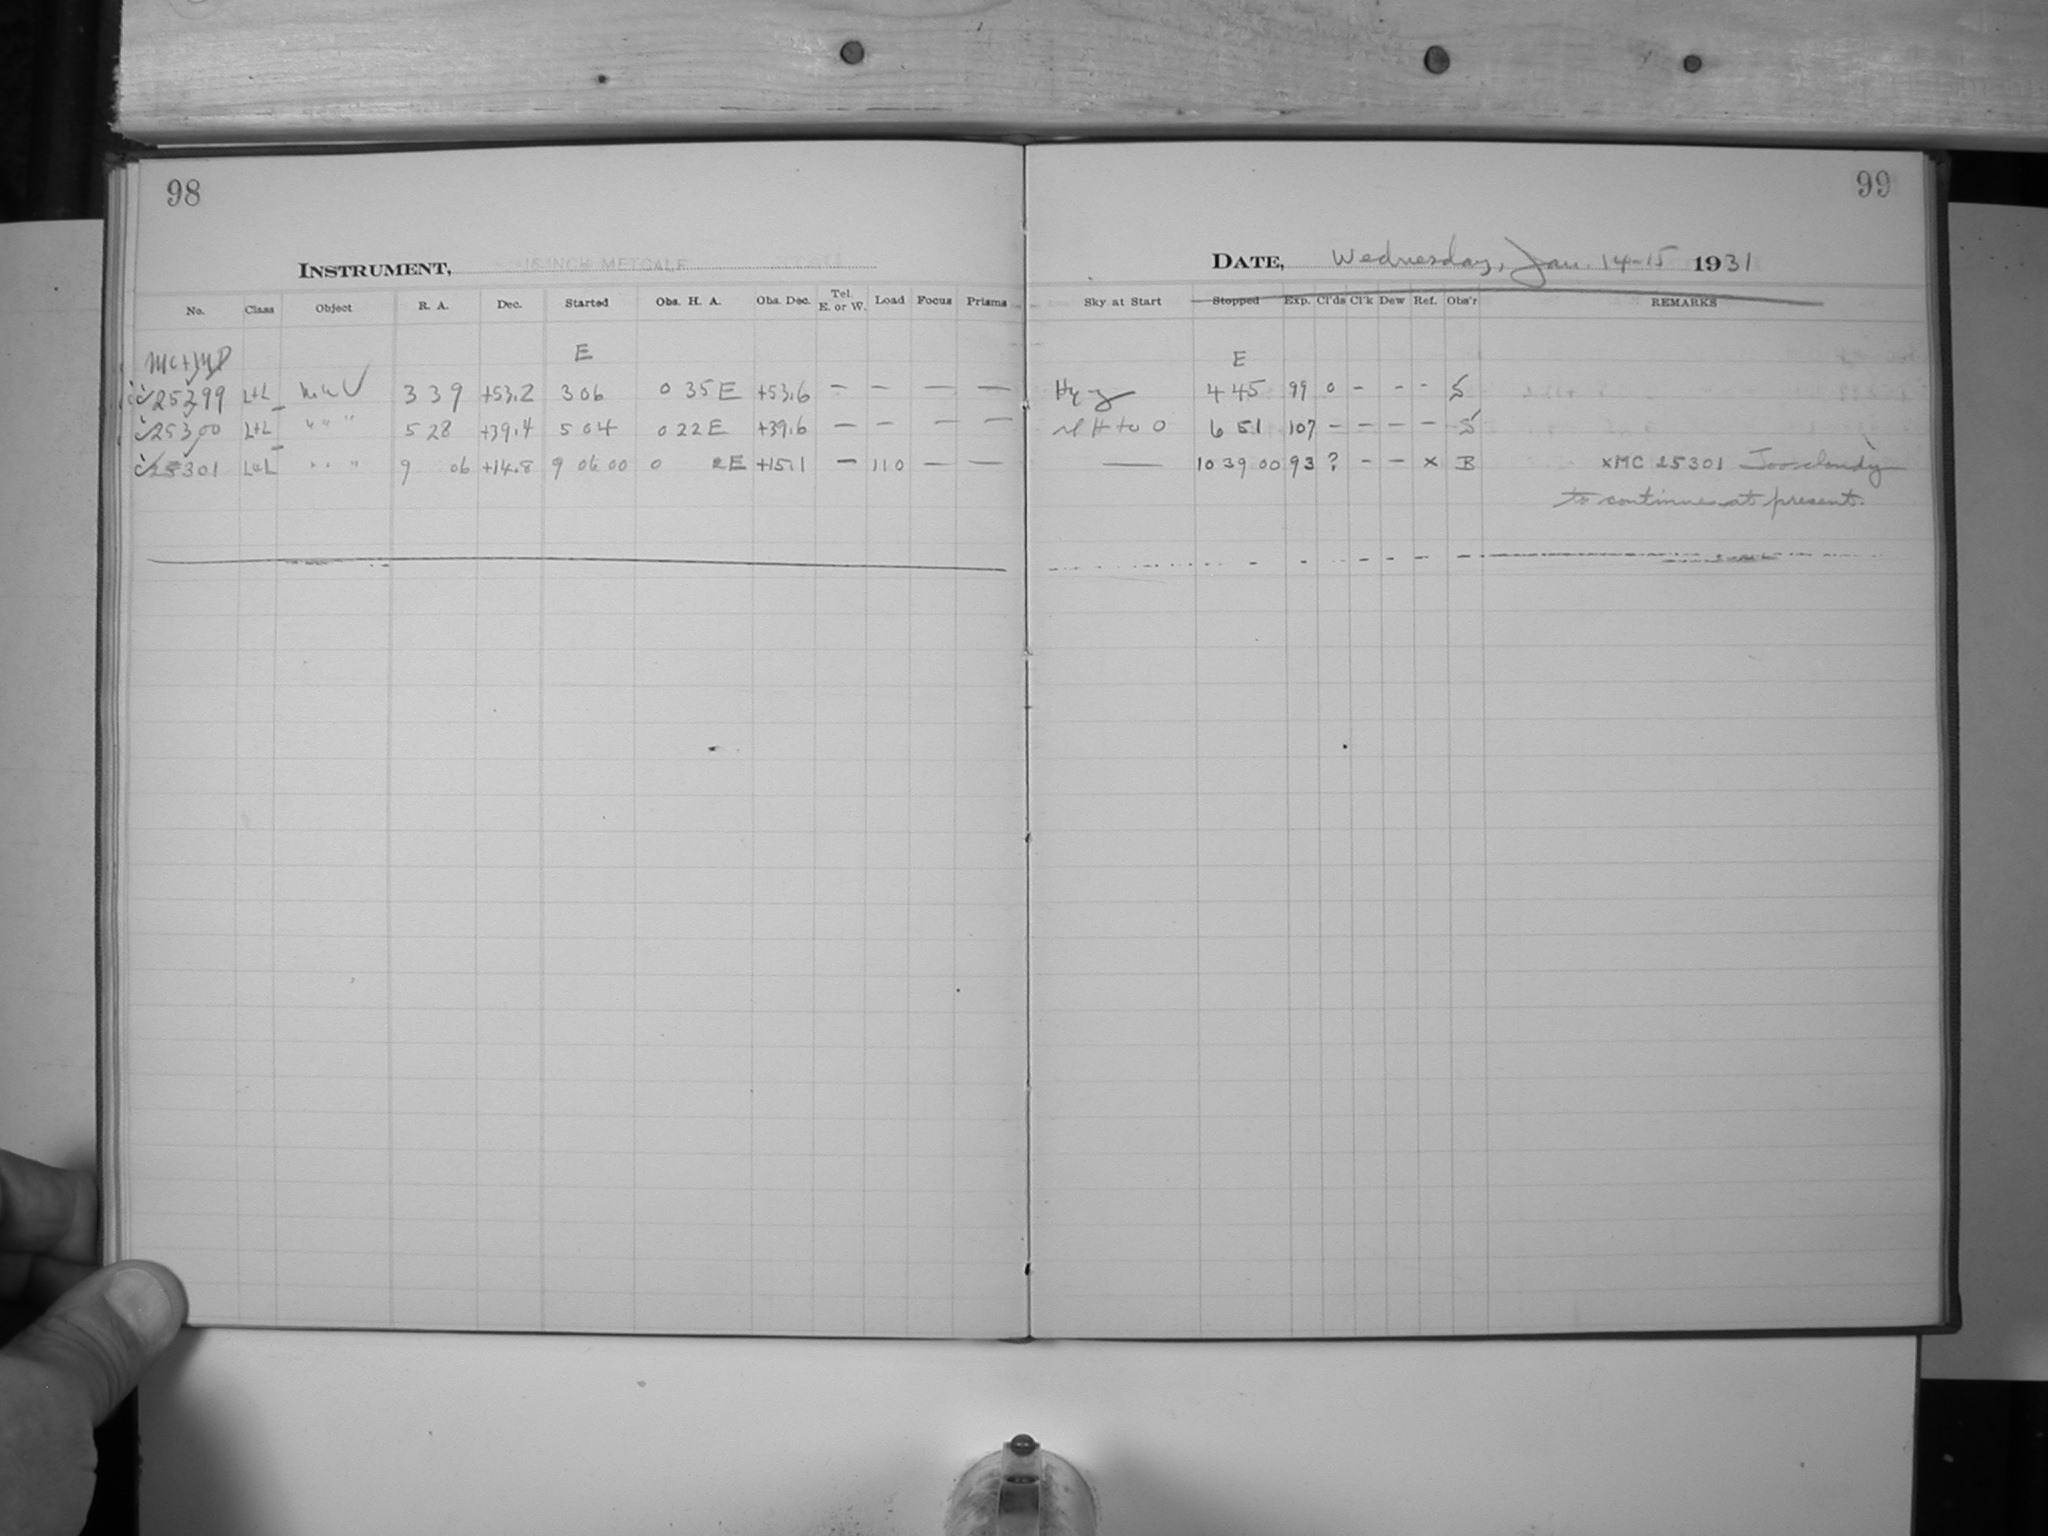 98
INSTRUMENT, 16 INCH METCALF
No. Class Object R. A. Dec. Started Obs. H. A. Obs. Dec. Tel. E. or W. Load Focus Prisms
E
25399 L+L 3 39 +53.2 3 06 0 35 E +53.6 — — — —
25300 L+L " " " 5 28 +39.4 5 04 0 22 E +39.6 — — — —
25301 L+L " " " 9 06 +14.8 9 06 00 0 2 E +15.1 — 110 — —
99
DATE, Wednesday, Jan. 14-15 1931
Sky at Start Stopped Exp. Cl'ds Cl'k Dew Ref. Obs'r REMARKS
E
4 45 99 0 - - - S
H to 0 6 51 107 - - - - S
— 10 39 00 93 ? - - x B xMC 25301 Too cloudy
to continue at present.